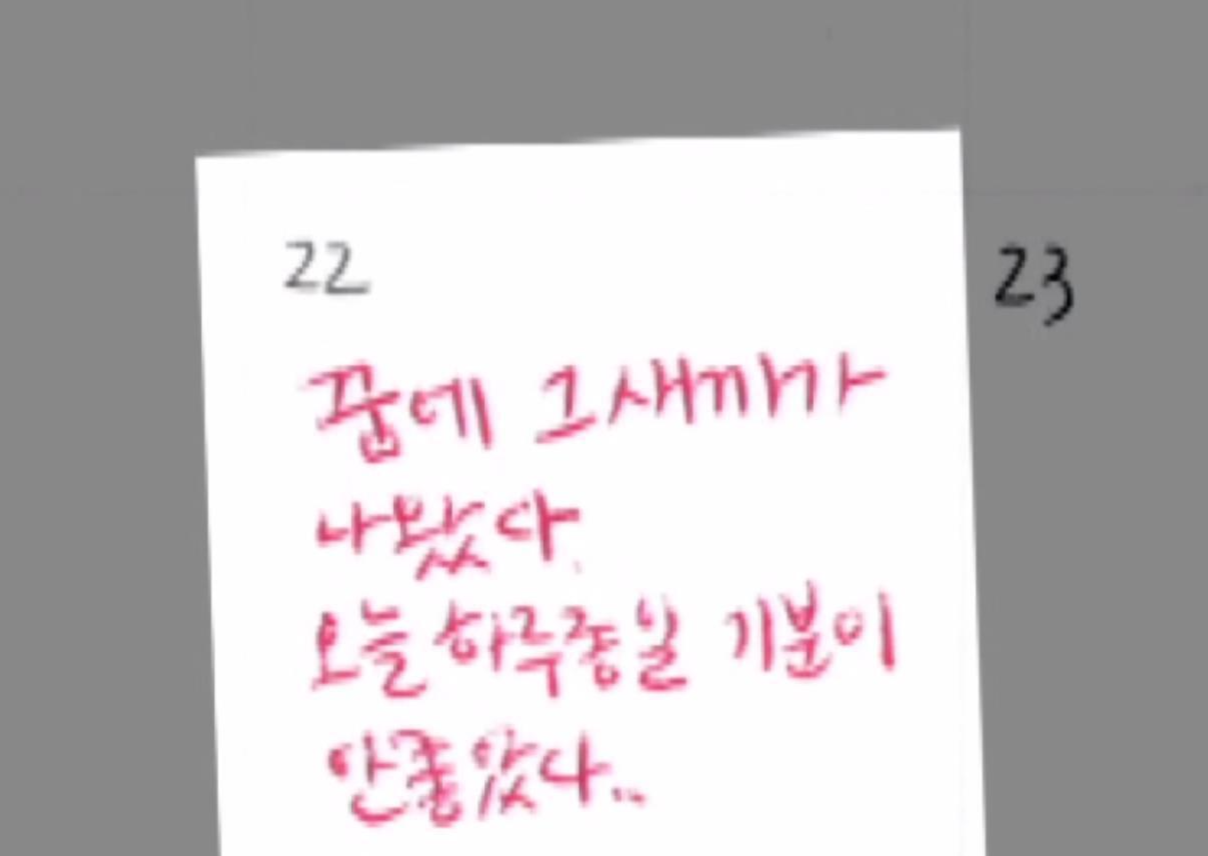 22
23
꿈에 그새끼가
나왔다.
오늘 하루종일 기분이
안좋았다..